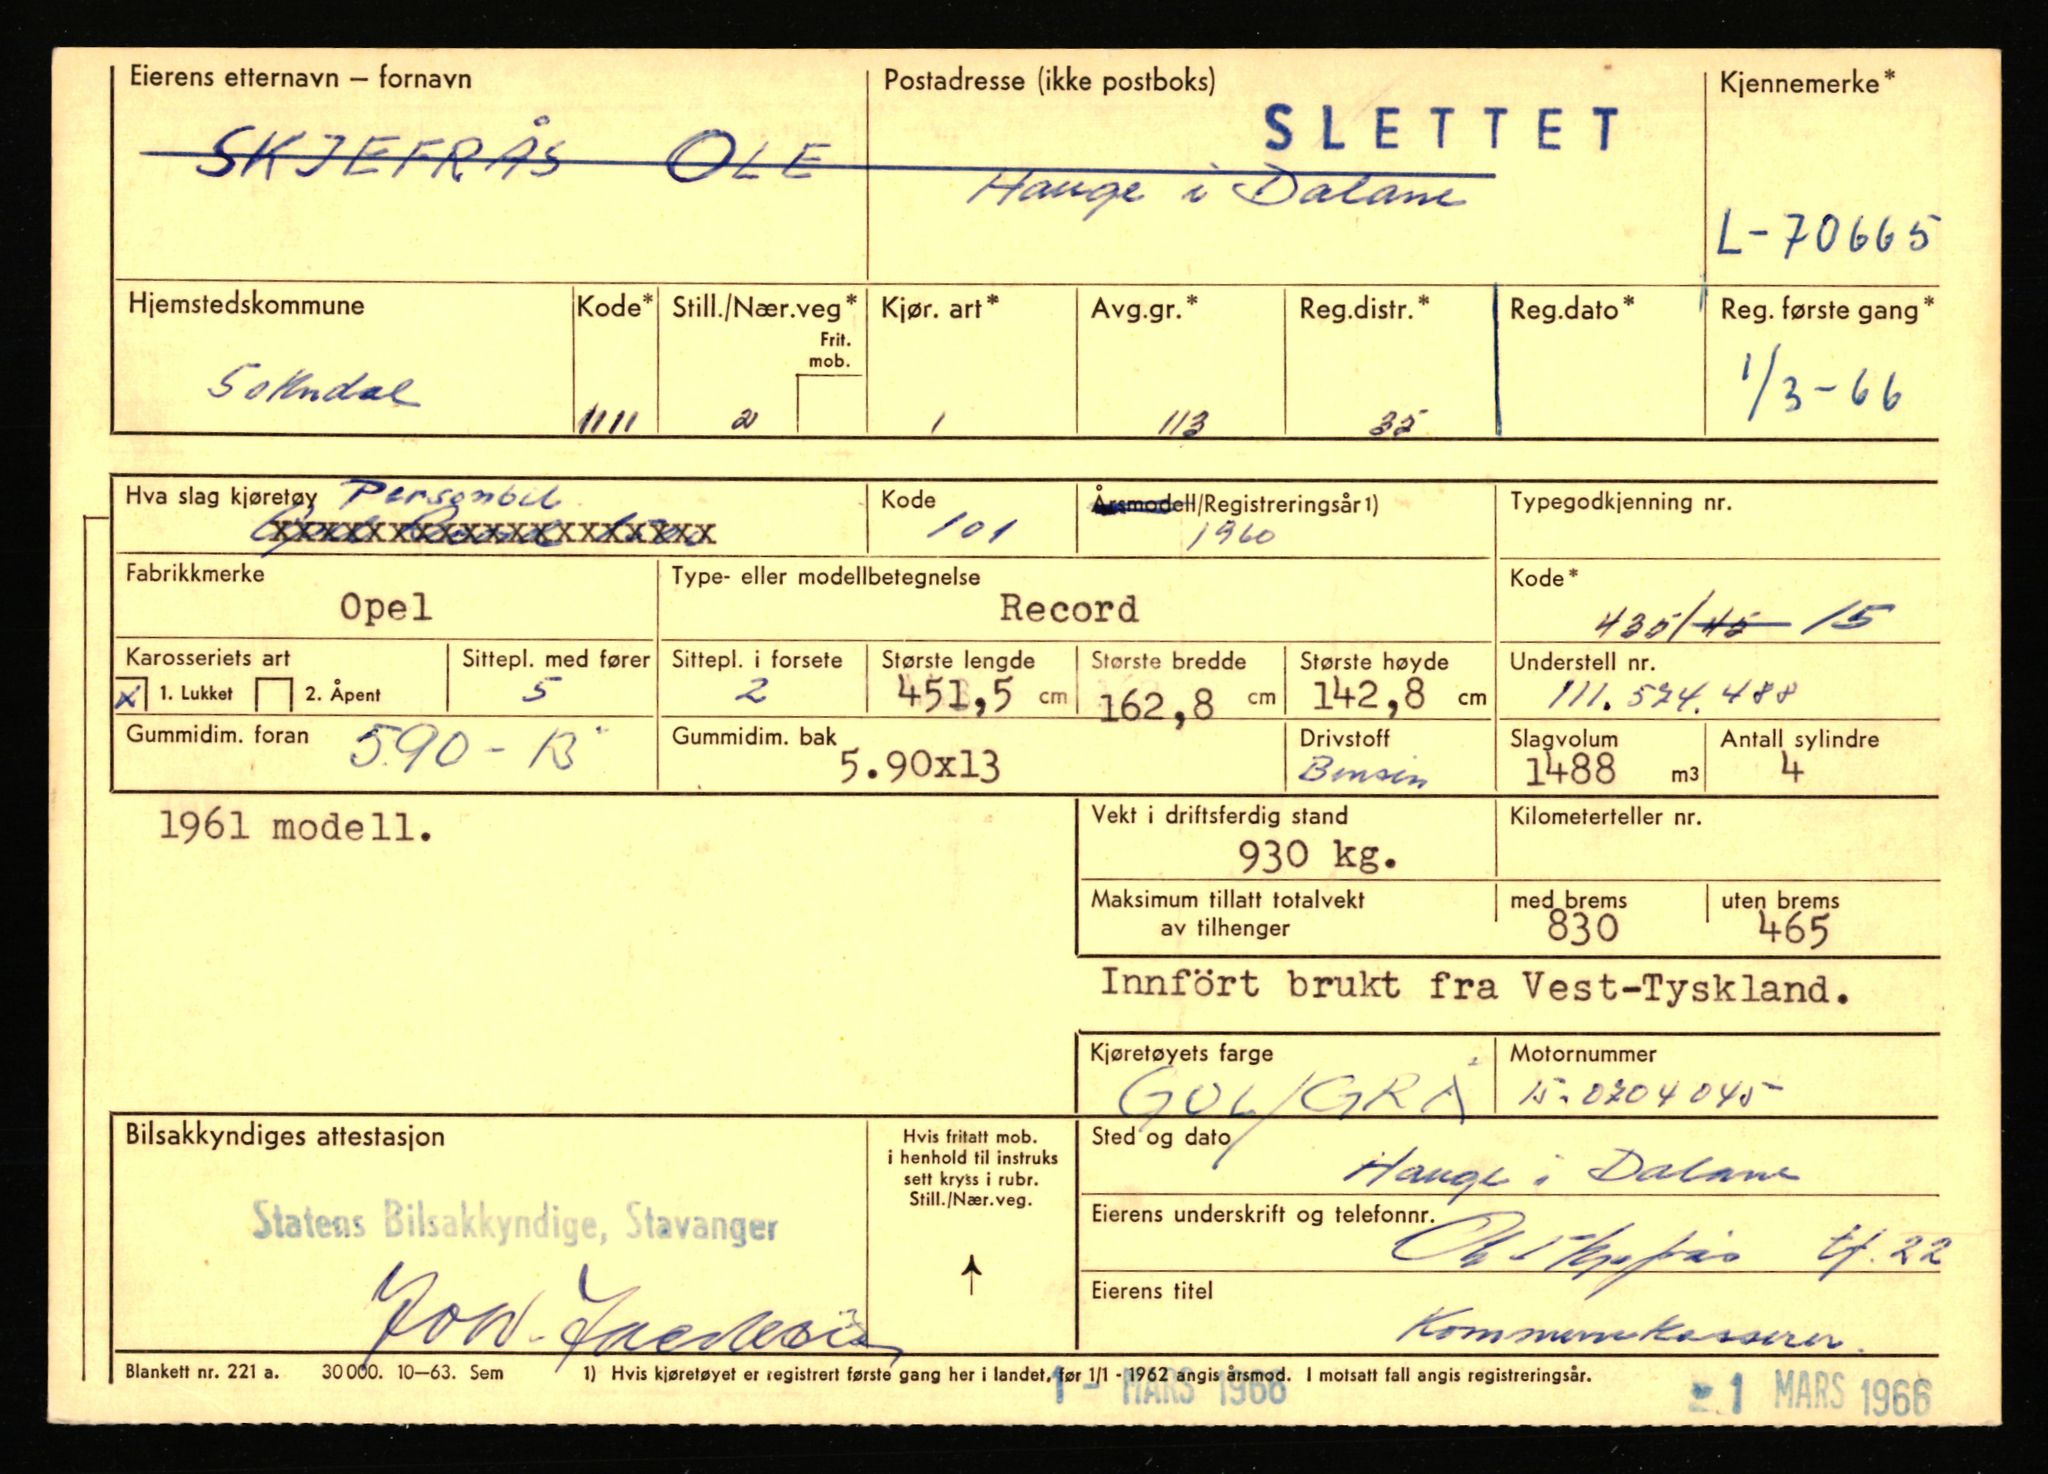 Eierens etternavn – fornavn
Postadresse (ikke postboks)
Kjennemerke*
SLETTET
SKJEFRÅS OLE
Hauge i Dalane
L-70665
Hjemstedskommune
Kode*
Still./Nær.veg*
Frit. mob.
Kjør. art*
Avg.gr.*
Reg.distr.*
Reg.dato*
Reg. første gang*
Sokndal
1111
2
1
113
35
1/3-66
Hva slag kjøretøy
Personbil
xxxxxxxxxxxxxxxxxxxx
Kode
101
Årsmodell/Registreringsår1)
1960
Typegodkjenning nr.
Fabrikkmerke
Opel
Type- eller modellbetegnelse
Record
Kode*
435/45 15
Karosseriets art
x 1. Lukket 2. Åpent
Sittepl. med fører
5
Sittepl. i forsete
2
Største lengde
451,5 cm
Største bredde
162,8 cm
Største høyde
142,8 cm
Understell nr.
111.574.488
Gummidim. foran
5.90-13"
Gummidim. bak
5.90x13
Drivstoff
Bensin
Slagvolum
1488 m3
Antall sylindre
4
1961 modell.
Vekt i driftsferdig stand
930 kg.
Kilometerteller nr.
Maksimum tillatt totalvekt
av tilhenger
med brems
830
uten brems
465
Innfört brukt fra Vest-Tyskland.
Kjøretøyets farge
GUL/GRÅ
Motornummer
15-0704045
Bilsakkyndiges attestasjon
Statens Bilsakkyndige, Stavanger
Hvis fritatt mob.
i henhold til instruks
sett kryss i rubr.
Still./Nær.veg.
Sted og dato
Hauge i Dalane
Eierens underskrift og telefonnr.
Ole Skjefrås tf. 22
Eierens titel
Kommunekasserer.
Blankett nr. 221 a. 30000. 10–63. Sem
1) Hvis kjøretøyet er registrert første gang her i landet, før 1/1 - 1962 angis årsmod. I motsatt fall angis registreringsår.
1 - MARS 1966
-1 MARS 1966